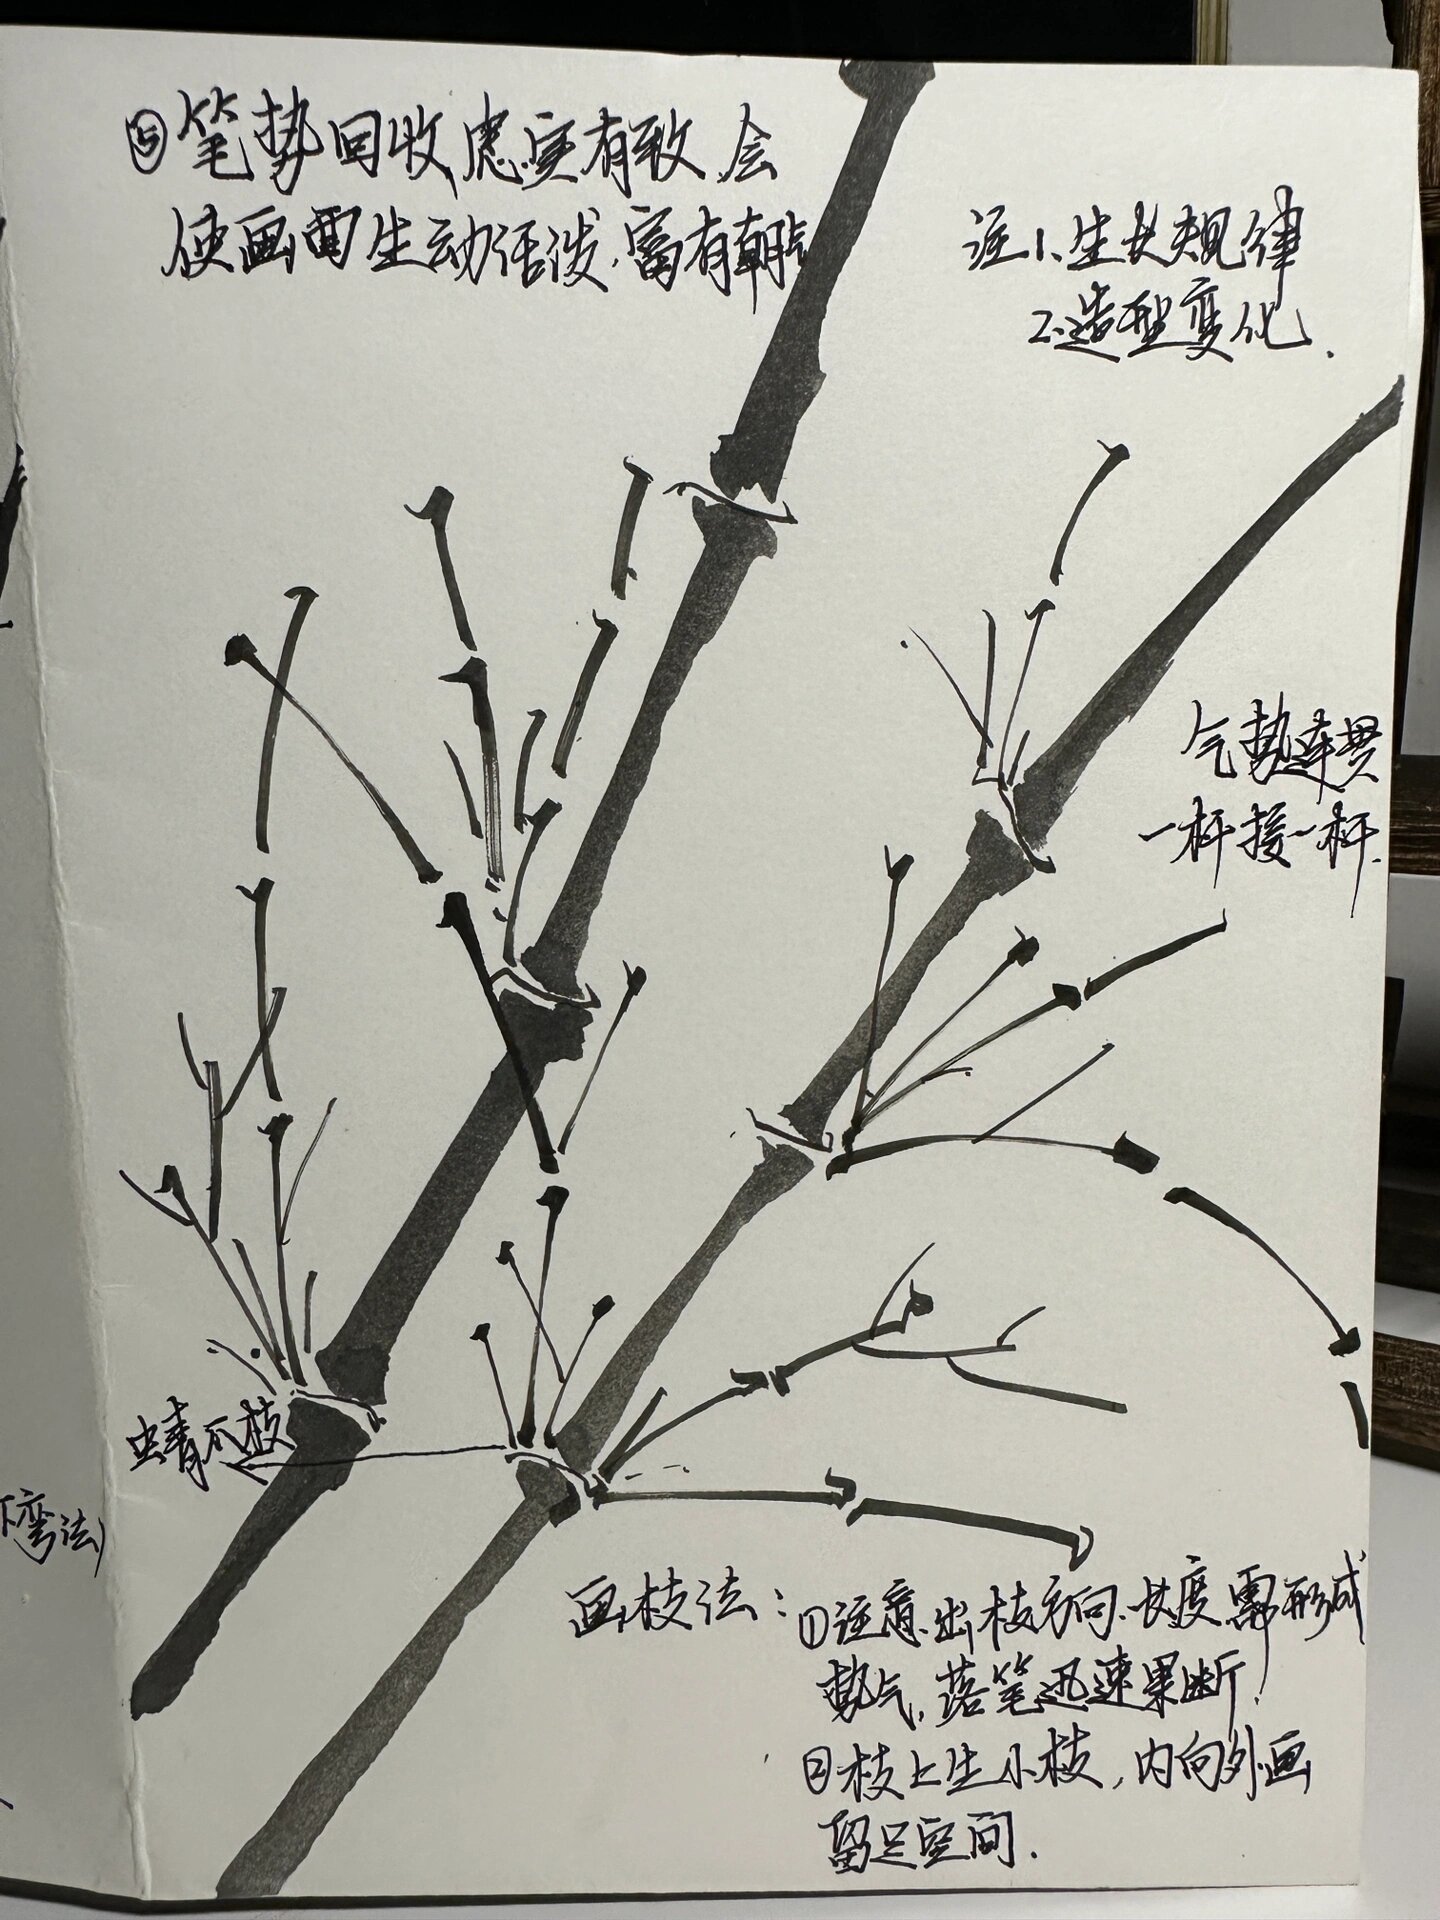 ⑤笔势回收,虚实有致,会
使画面生动活泼,富有朝气
注1、生长规律
2、造型变化.
气势连贯
一杆接一杆.
蜻爪枝
下弯法)
画枝法:①注意出枝方向、长度需形成
势气,落笔迅速果断.
②枝上生小枝,内向外画
留足空间.